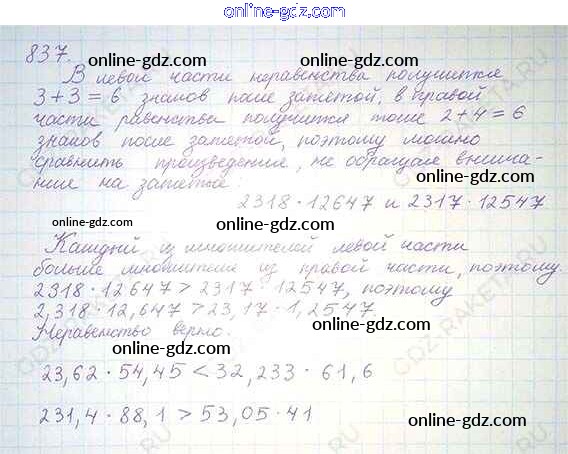 online-gdz.com
837.
online-gdz.com online-gdz.com
В левой части неравенства получится
3+3=6 знаков после запятой, в правой
online-gdz.com online-gdz.com
части равенства получится тоже 2+4=6
знаков после запятой, поэтому можно
сравнить произведение, не обращая внима-
online-gdz.com
ние на запятые:
2318·12647 и 2317·12547
online-gdz.com
online-gdz.com
Каждый из множителей левой части
больше множителя из правой части, поэтому.
2318·12647>2317·12547, поэтому
online-gdz.com online-gdz.com
2,318·12,647>23,17·1,2547.
Неравенство верно.
online-gdz.com
23,62·54,45<32,233·61,6
231,4·88,1>53,05·41
online-gdz.com
online-gdz.com
GDZ-RAKETA.RU